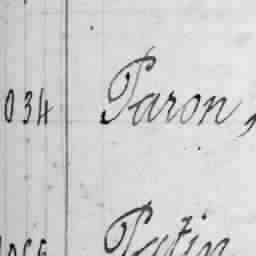 034 Paron,
Patin